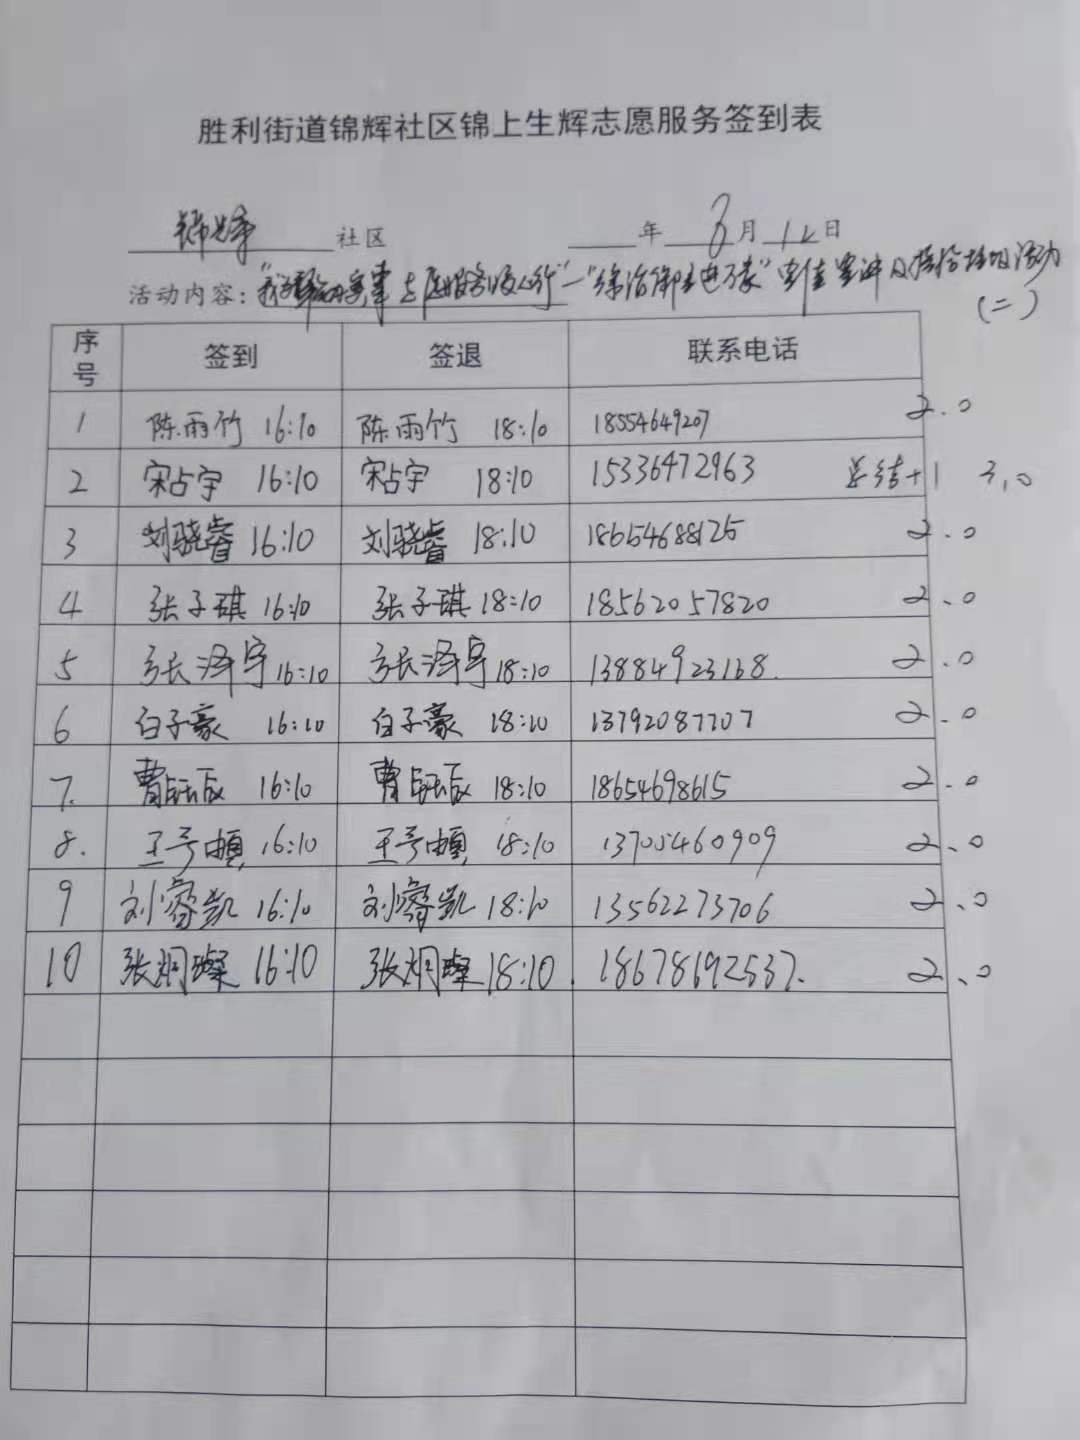 胜利街道锦辉社区锦上生辉志愿服务签到表
锦辉 社区 年 8 月 12 日
活动内容：“我为群众办实事 志愿服务暖人行”—“ 宣传宣讲及 活动
（二）
序号 签到 签退 联系电话
1 陈雨竹 16:10 陈雨竹 18:10 18554649207 2.0
2 宋占宇 16:10 宋占宇 18:10 15336472963 总结+1 3.0
3 刘骁睿 16:10 刘骁睿 18:10 18654688125 2.0
4 张子琪 16:10 张子琪 18:10 18562057820 2.0
5 张泽宇 16:10 张泽宇 18:10 13884923168. 2.0
6 白子豪 16:10 白子豪 18:10 13792087707 2.0
7. 曹 16:10 曹 18:10 18654698615 2.0
8. 王 16:10 王 18:10 13705460909 2.0
9 刘睿凯 16:10 刘睿凯 18:10 13562273706 2.0
10 张炯璨 16:10 张炯璨 18:10. 18678692537. 2.0